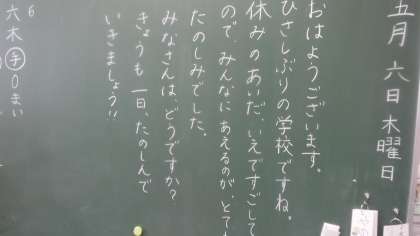 五月六日木曜日
おはようございます。
ひさしぶりの学校ですね。
休みのあいだ、いえですごして
ので、みんなにあえるのが、とて
たのしみでした。
みなさんは、どうですか？
きょうも一日、たのしんで
いきましょう!!
6
六木手0まい